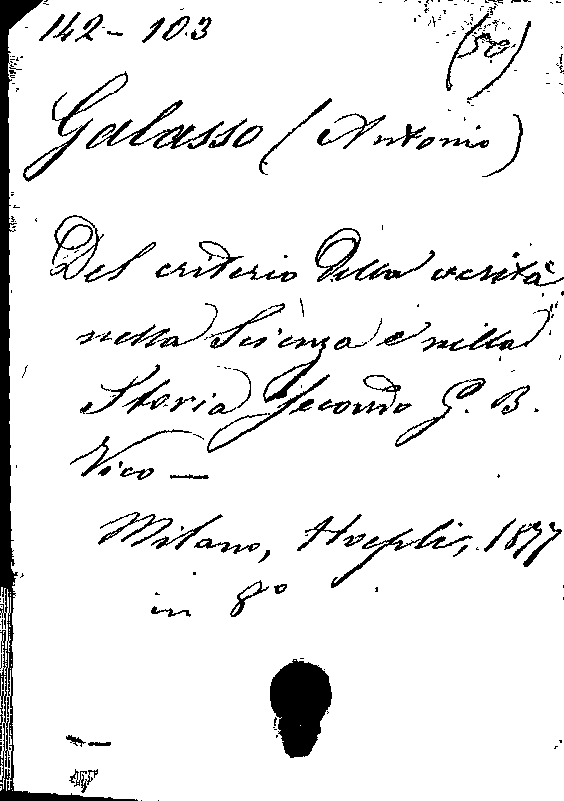 142 - 103
(50)
Galasso (Antonio)
Del criterio della verità
nella Scienza e nella
Storia secondo G. B.
Vico —
Milano, Hoepli, 1877
in 8º